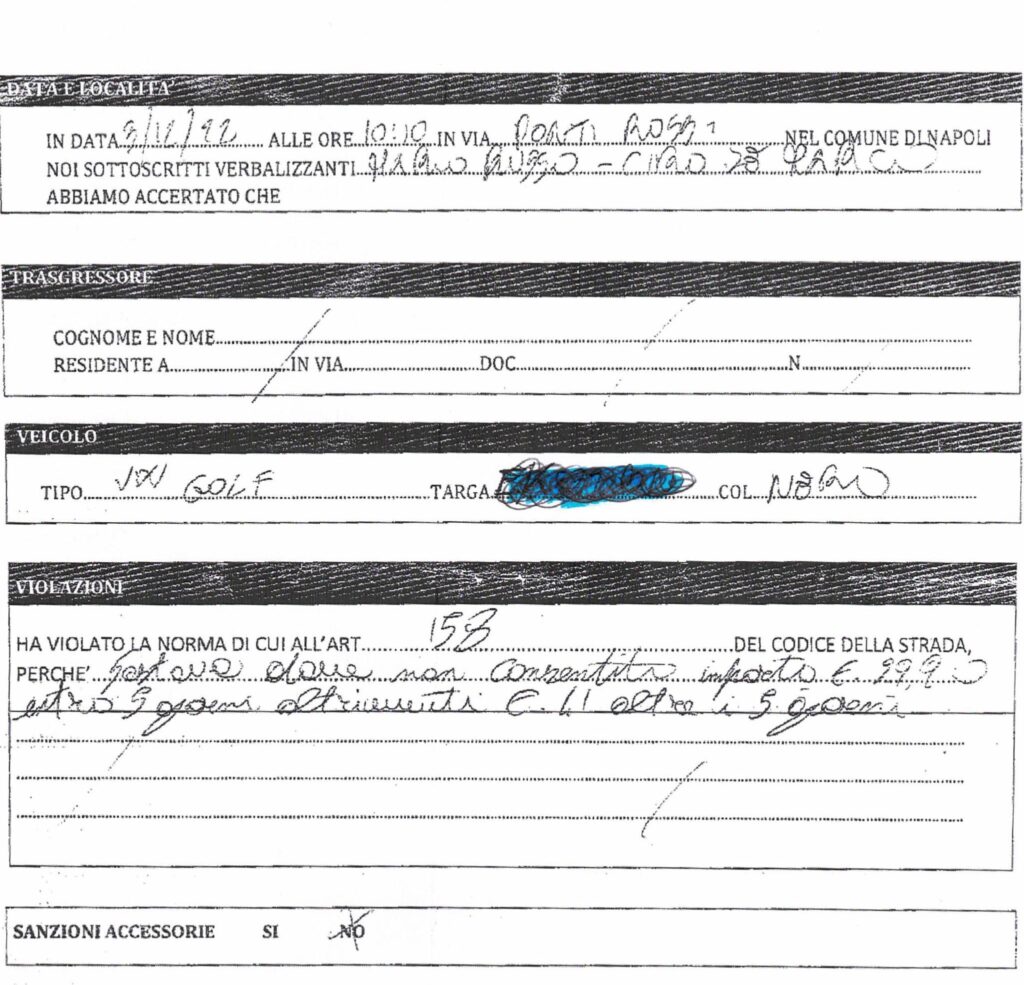 DATA E LOCALITA'
IN DATA 9/12/22 ALLE ORE 10:10 IN VIA PONTI ROSSI NEL COMUNE DI NAPOLI
NOI SOTTOSCRITTI VERBALIZZANTI MARIO RUSSO - CIRO
ABBIAMO ACCERTATO CHE
TRASGRESSORE
COGNOME E NOME
RESIDENTE A IN VIA DOC N
VEICOLO
TIPO VW GOLF TARGA COL NERO
VIOLAZIONI
HA VIOLATO LA NORMA DI CUI ALL'ART. 158 DEL CODICE DELLA STRADA,
PERCHE' Sostava dove non consentito importo E.
entro 5 giorni altrimenti E. 41 oltre i 5 giorni
SANZIONI ACCESSORIE SI NO